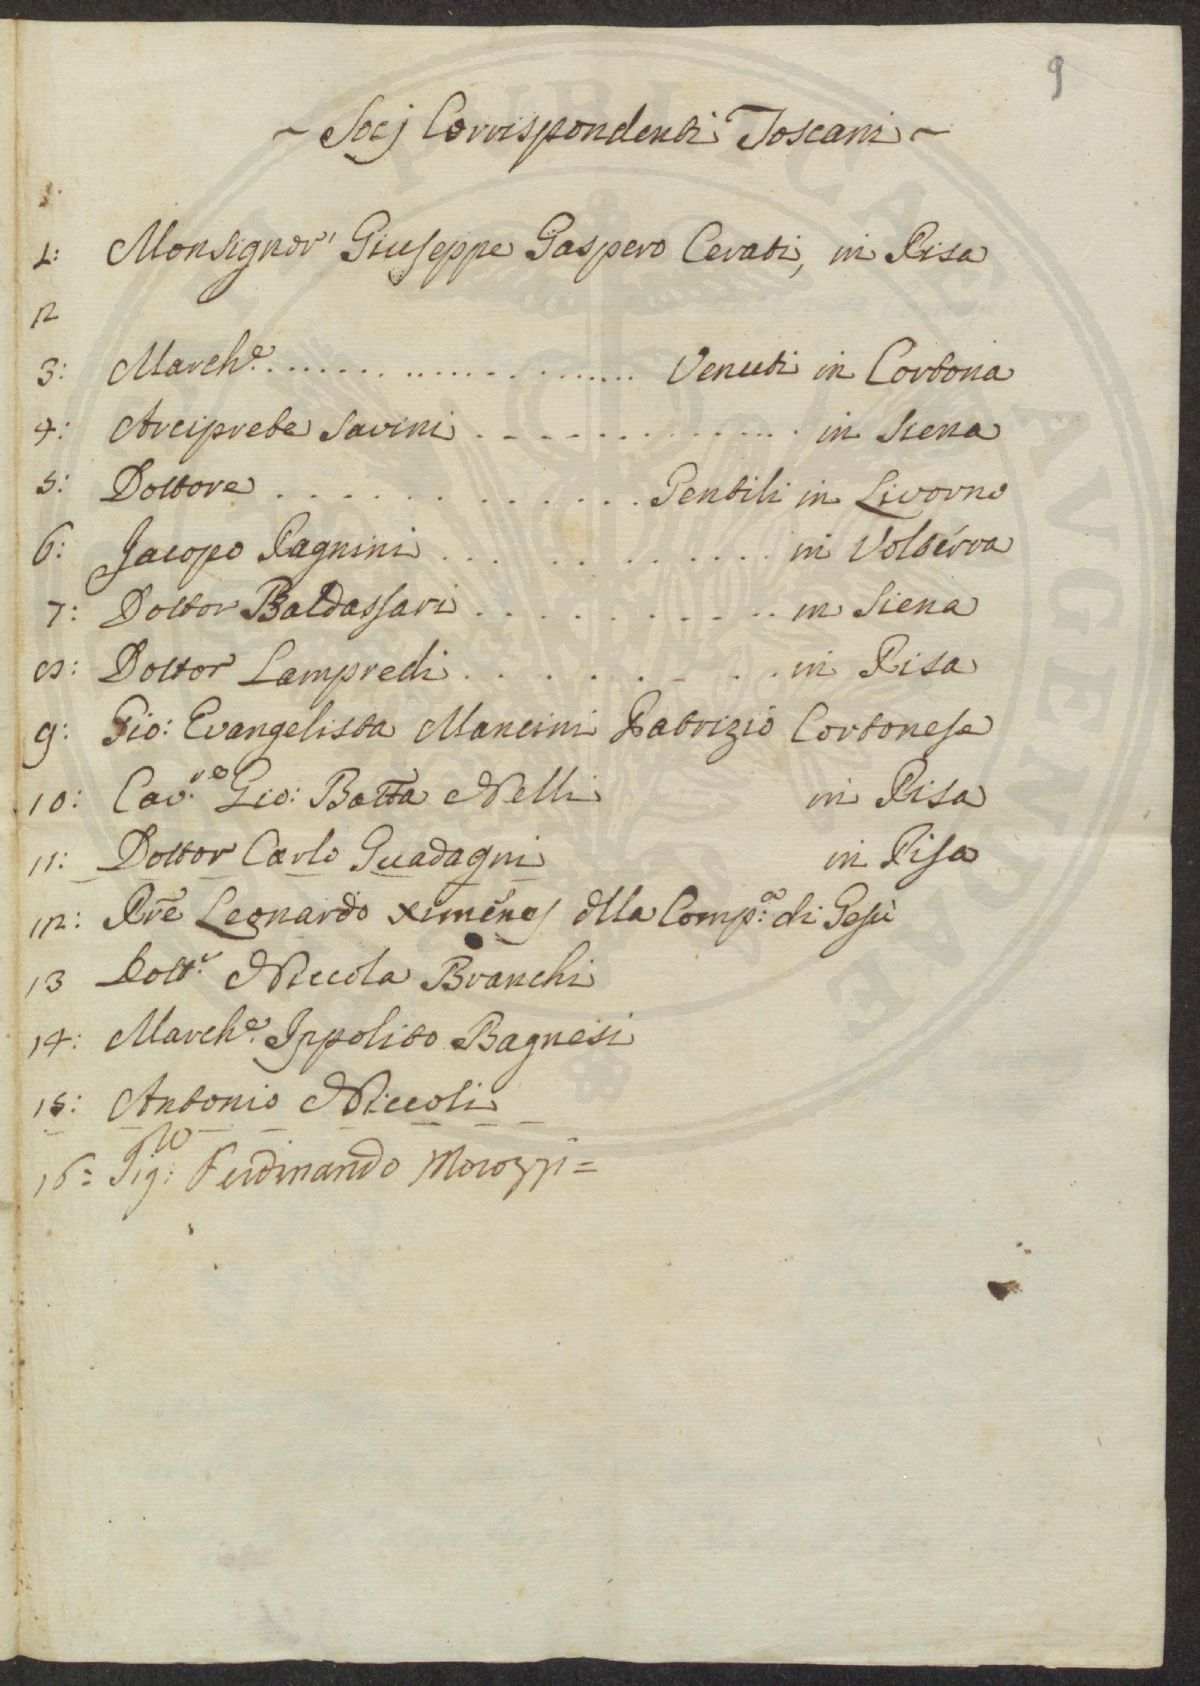 9
~ Socj Corrispondenti Toscani ~
1: Monsignor' Giuseppe Gaspero Cerati, in Pisa
2
3: March.e ........................ Venuti in Cortona
4: Arciprete Savini .............. in Siena
5: Dottore ............. Gentili in Livorno
6: Jacopo Pagnini ........... in Volterra
7: Dottor Baldassari .......... in Siena
8: Dottor Lampredi ......... in Pisa
9: Gio: Evangelista Mancini Patrizio Cortonese
10: Cav.re Gio: Batta Nelli in Pisa
11: Dottor Carlo Guadagni in Pisa
12: Pre Leonardo Ximenes dlla Comp.a di Gesù
13 Dott.r Niccola Branchi
14: March.e Ippolito Bagnesi
15: Antonio Niccoli
16= Sig: Ferdinando Morozzi=